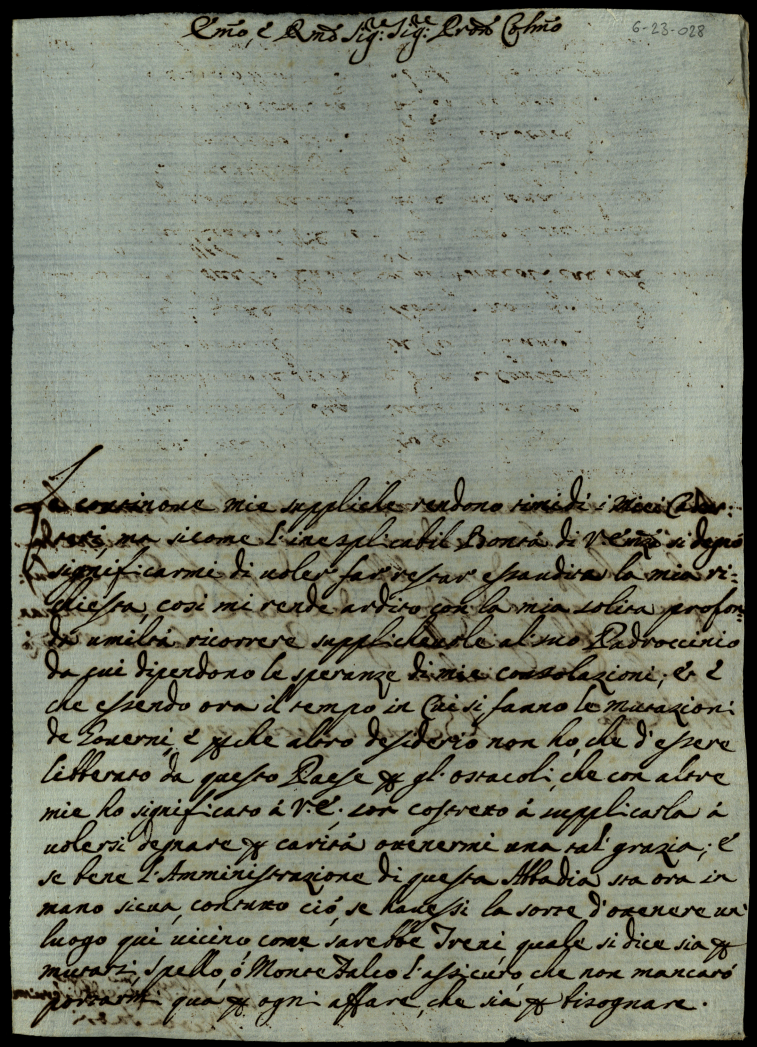 Emo, e Rmo Sig.re Sig.re Prone Colmo
6-23-028
Le continoue mie suppliche rendono timidi i miei
ma sicome l'inesplicabil Bontá di V. Emza si degnó
significarmi di uoler' far restar' essaudita la mia ri=
chiesta, cosi mi rende ardito con la mia solita profon=
da umiltá ricorrere supplicheuole al suo Padroccinio
da cui dipendono le speranze di mie consolazioni; et é
che essendo ora il tempo in Cui si fanno le mutazioni
de Gouerni, é p che altro desiderio non ho, che d'essere
libberato da questo Paese p gl' ostacoli, che con altre
mie ho significato á V. E. son costretto á supplicarla á
uolersi degnare p caritá ottenermi una tal' grazia; é
se bene l'Amministrazione di questa Abbadia sta ora in
mano sicura, contutto ció, se hauessi la sorte d'ottenere un'
luogo qui uicino come sarebbe Treui quale si dice sia p
mutarsi, Spello, ó Monte Falco l'assicuro che non mancaró
portarmi quá p ogni affare, che siá p bisognare.